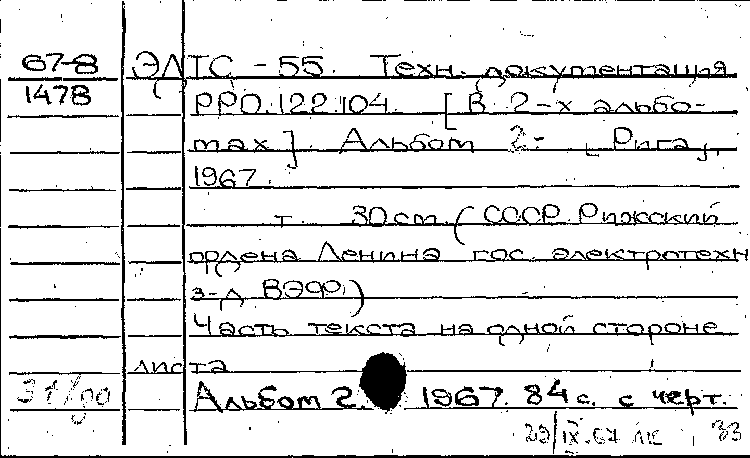 67-8 ЭЛТС -55. Техн. документация
1478 РРО.122.104. [В 2-х альбо-
max]. Альбом 2- [Рига],
1967.
т. 30 cm. (СССР. Рижский
ордена Ленина гос. электротехн
з-д ВЭФ.)
Часть текста на одной стороне
листа
Альбом 2. 1967. 84 с. с черт.
29/IX.67 ЛК 33